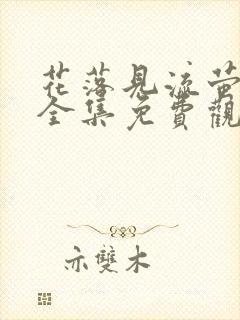 花落見流萤
全集免費觀
亦雙木